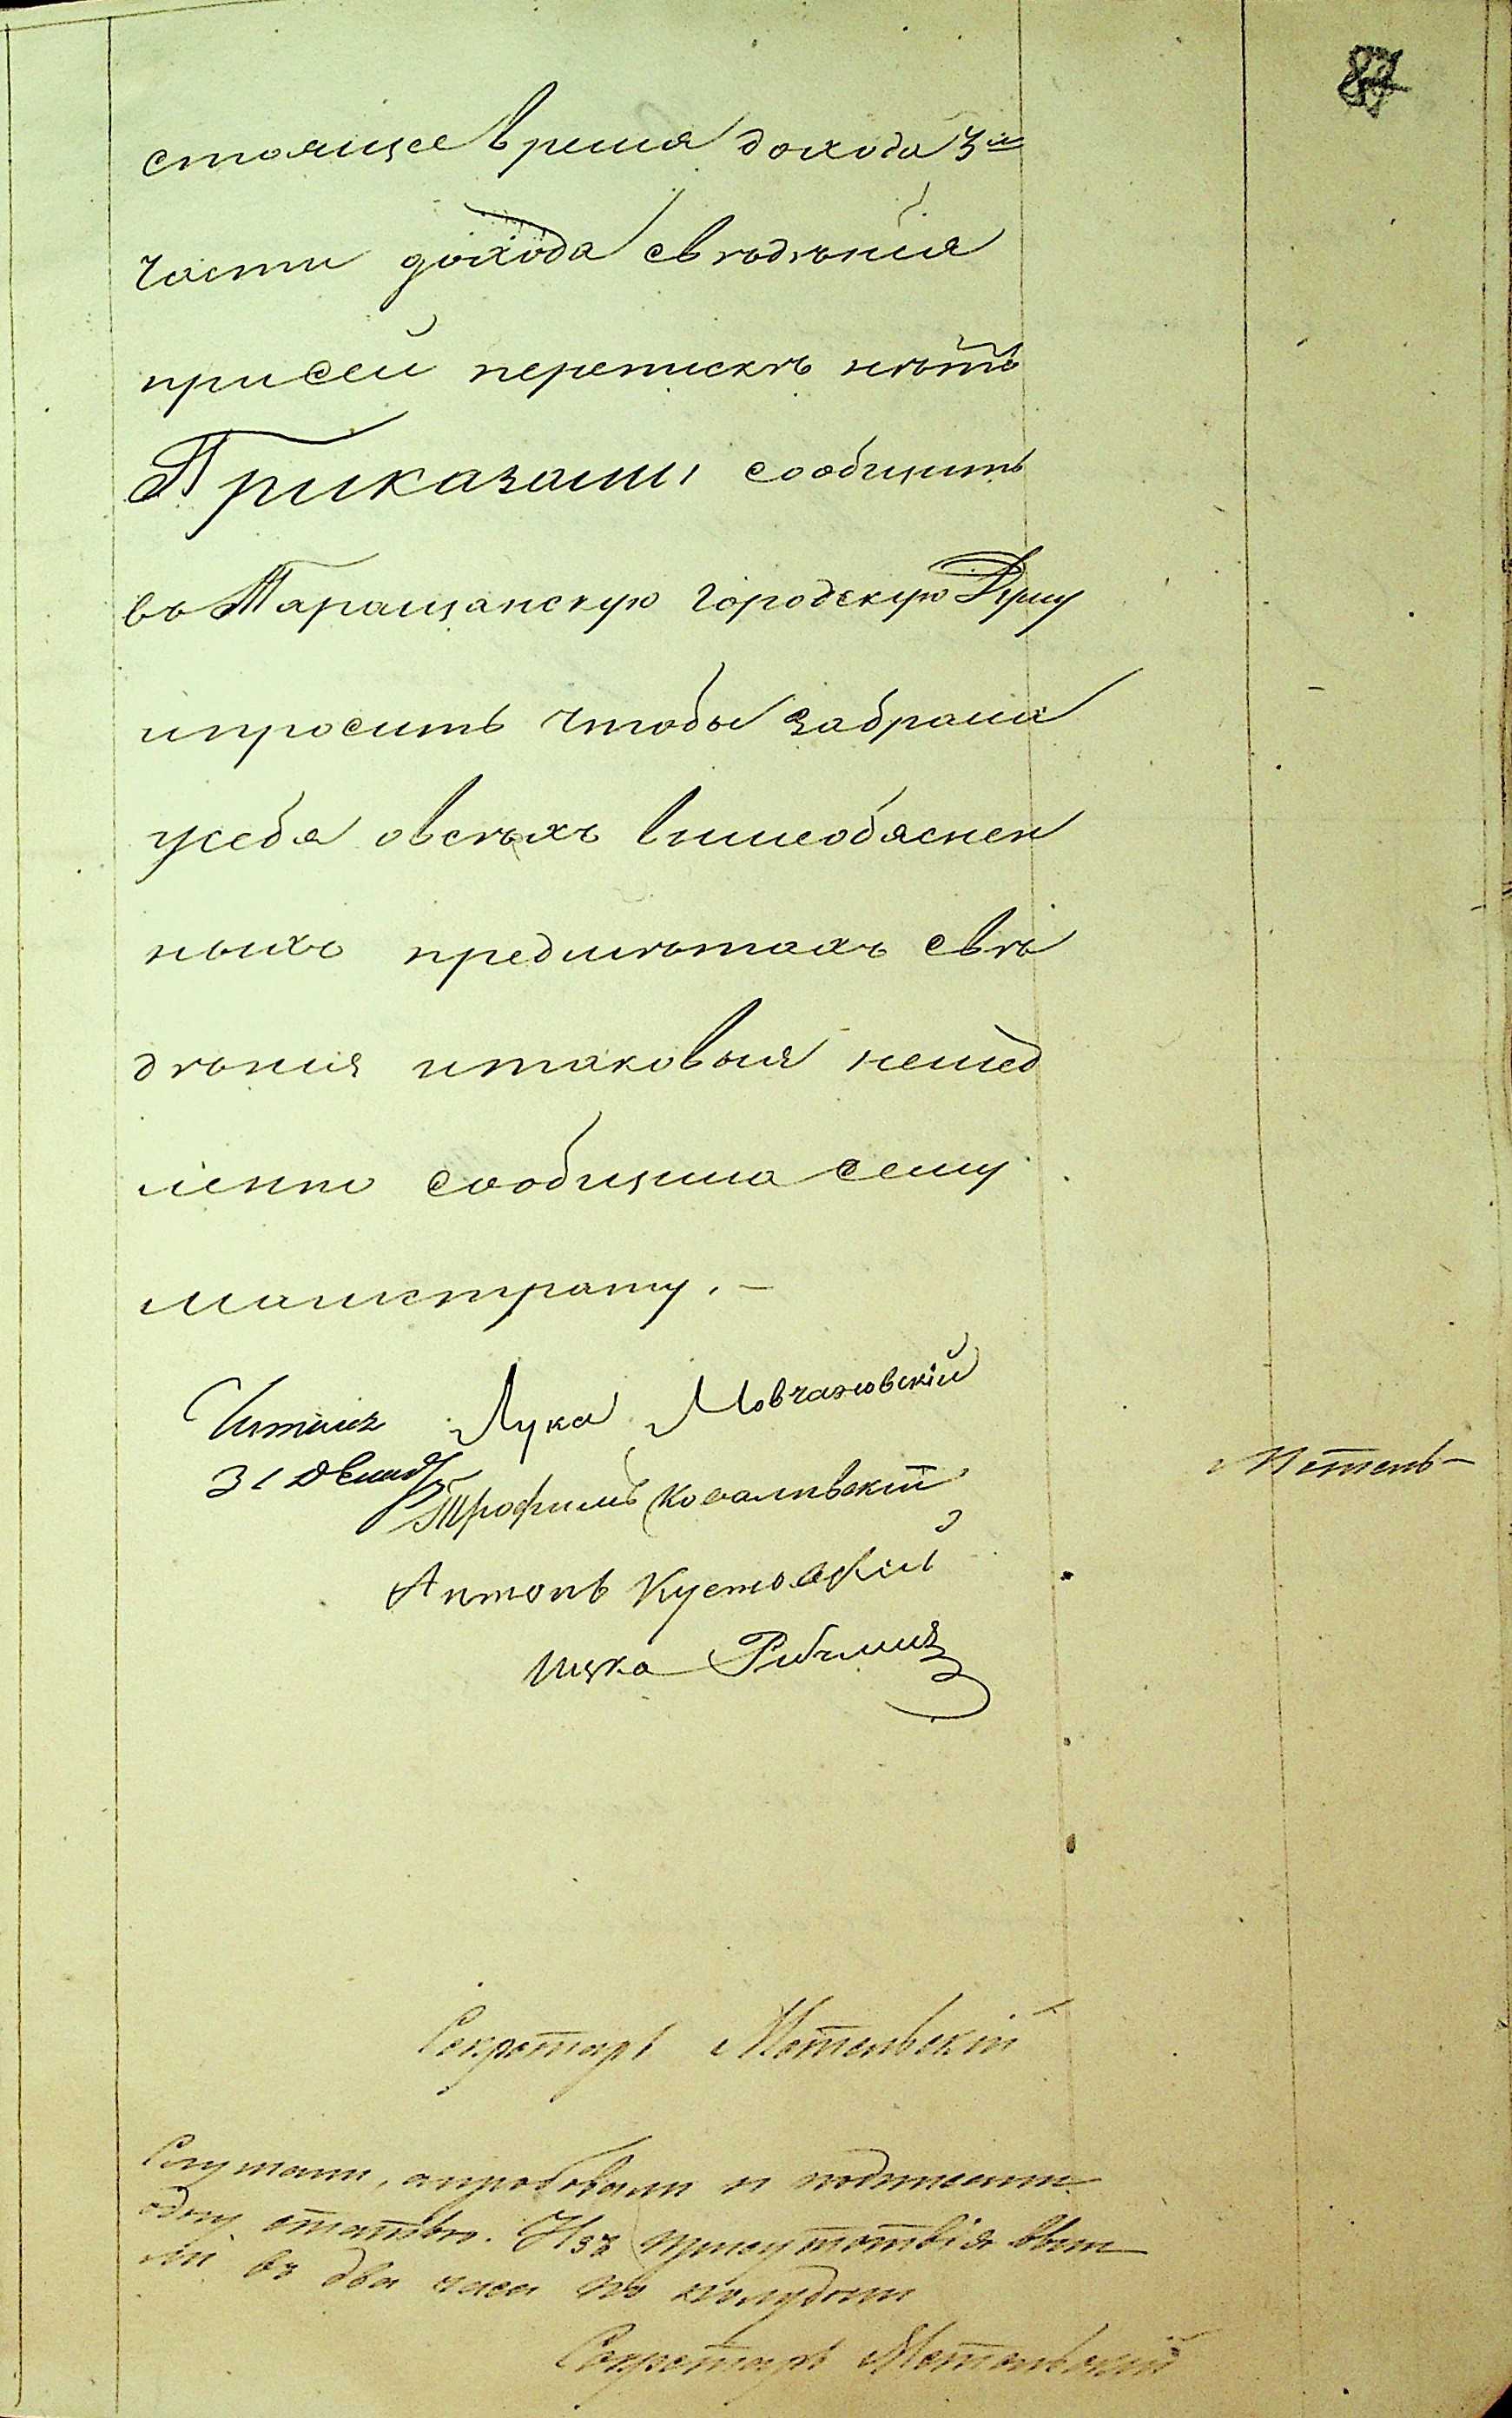 87
стоящее время дохода 3й
части дохода свѣдѣнія
присей перепискѣ нѣтъ
Приказали сообщить
въ Таращанскую городскую Думу
ипросить чтобы забрала
усебя овсѣхъ вишеобяснен
ныхъ предмѣтахъ свѣ
дѣния итаковыя немед
ленно сообщила сему
магистрату. —
Лука Мовчановскій
31 Трофимъ Ковалѣвскій
Антонъ Кустовскій
Ицко
Метель-
Секретарь Метельскій
Слушали, апробовали и подписали
одну статью. Изъ присутствія выш
ли въ два часа по полудни
Секретарь Метельскій